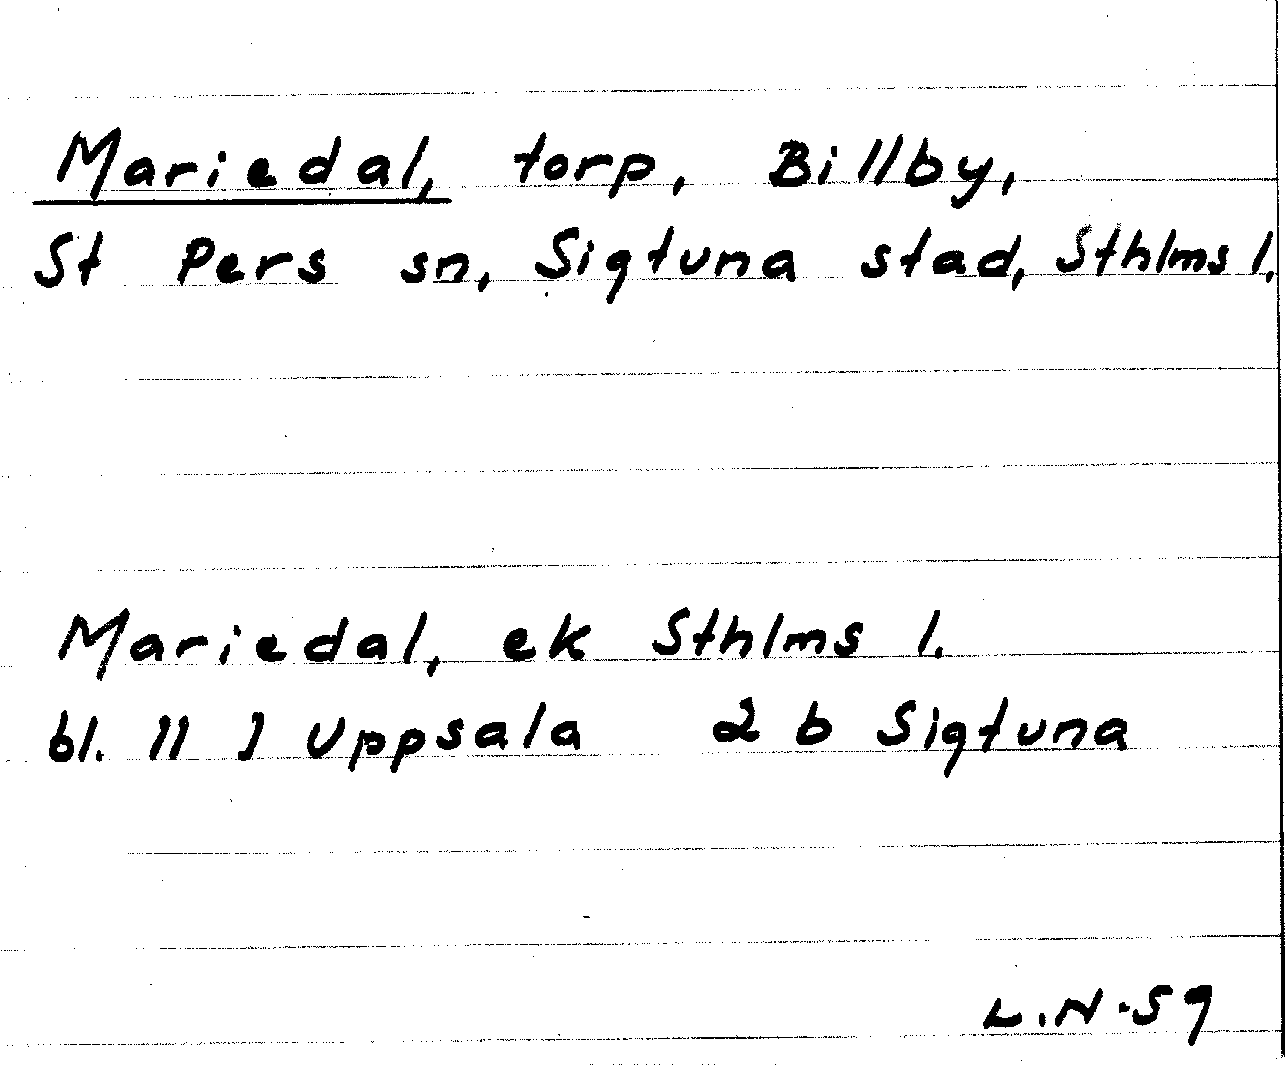 Mariedal, torp, Billby,
St Pers sn, Sigtuna stad, Sthlms l.
Mariedal, ek Sthlms l.
bl. 11 J Uppsala 2 b Sigtuna
L.N-59